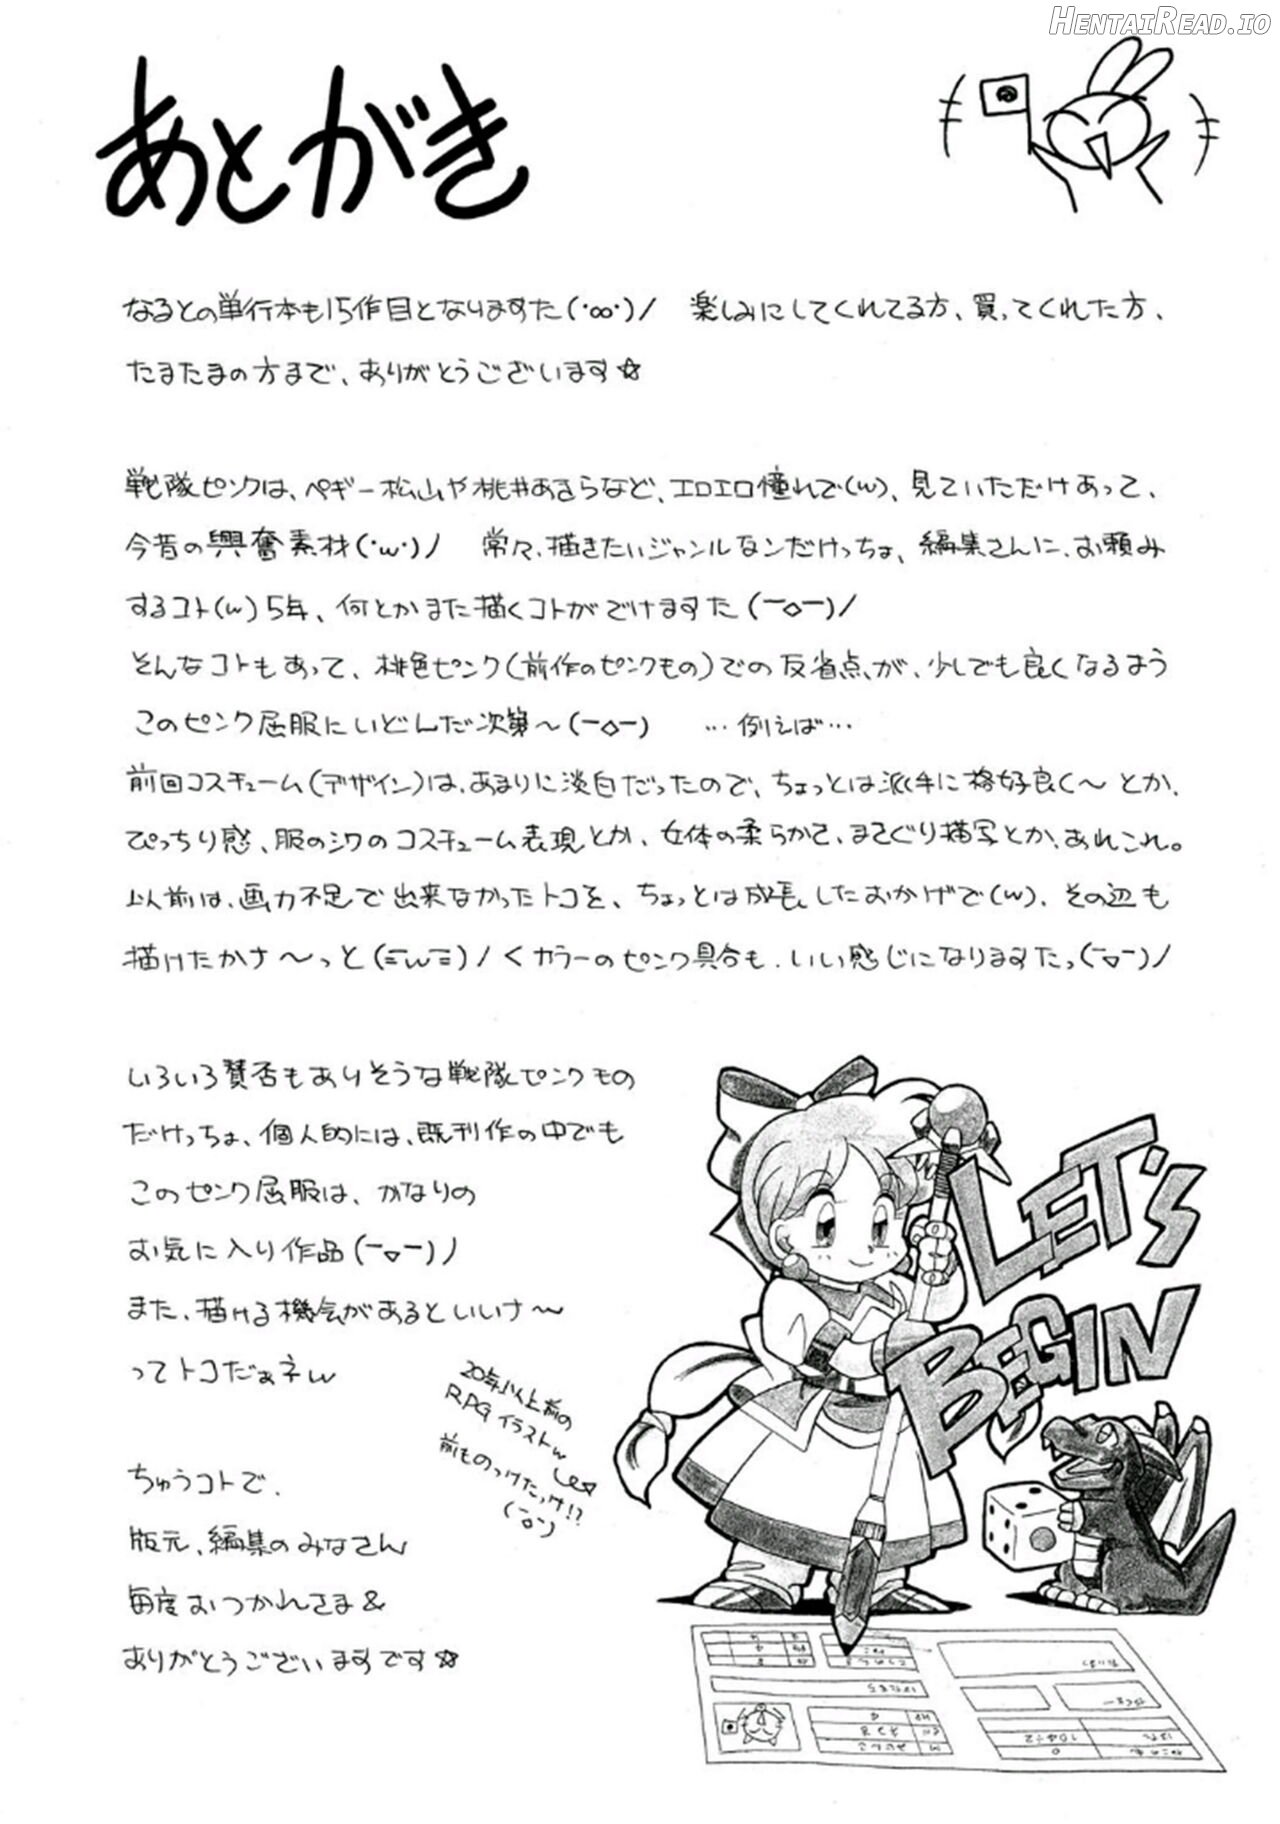 HentaiRead.io
あとがき
なるとの単行本も15作目となりますた(・∞・)ノ 楽しみにしてくれてる方、買ってくれた方、
たまたまの方まで、ありがとうございます☆
戦隊ピンクは、ペギー松山や桃井あきらなど、エロエロ憧れで(w)、見ていただけあって、
今昔の興奮素材(・w・)ノ 常々、描きたいジャンルなンだけっちょ、編集さんに、お頼み
するコト(w)5年、何とかまた描くコトがでけますた(ー◇ー)ノ
そんなコトもあって、桃色ピンク(前作のピンクもの)での反省点が、少しでも良くなるよう
このピンク屈服にいどんだ次第～(ー◇ー) …例えば…
前回コスチューム(デザイン)は、あまりに淡白だったので、ちょっとは派手に格好良く～とか、
ぴっちり感、服のシワのコスチューム表現とか、女体の柔らかさ、まさぐり描写とか、あれこれ。
以前は、画力不足で出来なかったトコを、ちょっとは成長したおかげで(w)、その辺も
描けたかナ～っと(ΞwΞ)ノ<カラーのピンク具合も、いい感じになりますたっ(ー▽ー)ノ
いろいろ賛否もありそうな戦隊ピンクもの
だけっちょ、個人的には、既刊作の中でも
このピンク屈服は、かなりの
お気に入り作品(ー▽ー)ノ
また、描ける機会があるといいナ～
ってトコだぁネw
20年以上前の
RPGイラストw
前ものっけたっけ!?
(ーoー)
LET'S
BEGIN
ちゅうコトで、
版元、編集のみなさん
毎度おつかれさま&
ありがとうございますです☆
HP
M